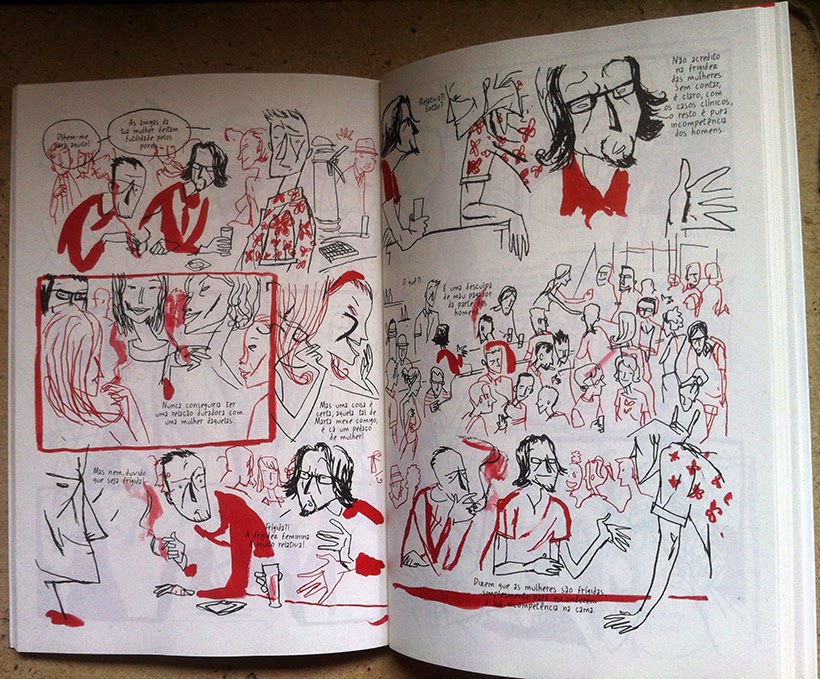 Olhem-me
para aquilo!
As amigas da
tua mulher deitam
futilidade pelos
poros.
Nunca conseguiria ter
uma relação duradora com
uma mulher daquelas.
Mas uma coisa é
certa, aquela tal de
Marta mexe comigo,
é cá um pedaço
de mulher!
Mas nem duvido
que seja frígida!
Frígida?!
A frigidez feminina
é muito relativa!
Relativa?!
Então?!
Não acredito
na frigidez
das mulheres.
Sem contar,
é claro, com
os casos clínicos,
o resto é pura
incompetência
dos homens.
O quê?!
É uma desculpa
de mau pagador
da parte dos
homens.
Dizem que as mulheres são frígidas
simplesmente para esconderem
a sua incompetência na cama.